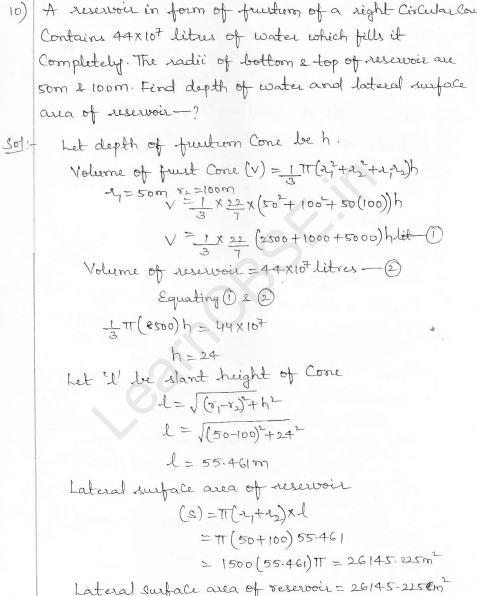 10) A reservoir in form of frustum of a right Circular Cone
Contains 44×10⁷ litres of water which fills it
Completely. The radii of bottom & top of reservoir are
50m & 100m. Find depth of water and lateral surface
area of reservoir—?
Sol:- Let depth of frustum Cone be h.
Volume of frust Cone (V) = 1/3 π(r₁²+r₂²+r₁r₂)h
r₁=50m r₂=100m
V = 1/3 × 22/7 × (50²+100²+50(100))h
V = 1/3 × 22/7 (2500+1000+5000)h — ①
Volume of reservoir = 44×10⁷ litres — ②
Equating ① & ②
1/3 π(8500)h = 44×10⁷
h = 24
Let 'l' be slant height of Cone
l = √((r₁-r₂)²+h²)
l = √((50-100)²+24²)
l = 55.461m
Lateral surface area of reservoir
(S) = π(r₁+r₂)×l
= π(50+100)55.461
= 1500(55.461)π = 26145.225m²
Lateral Surface area of reservoir = 26145.225m²
LearnCBSE.in